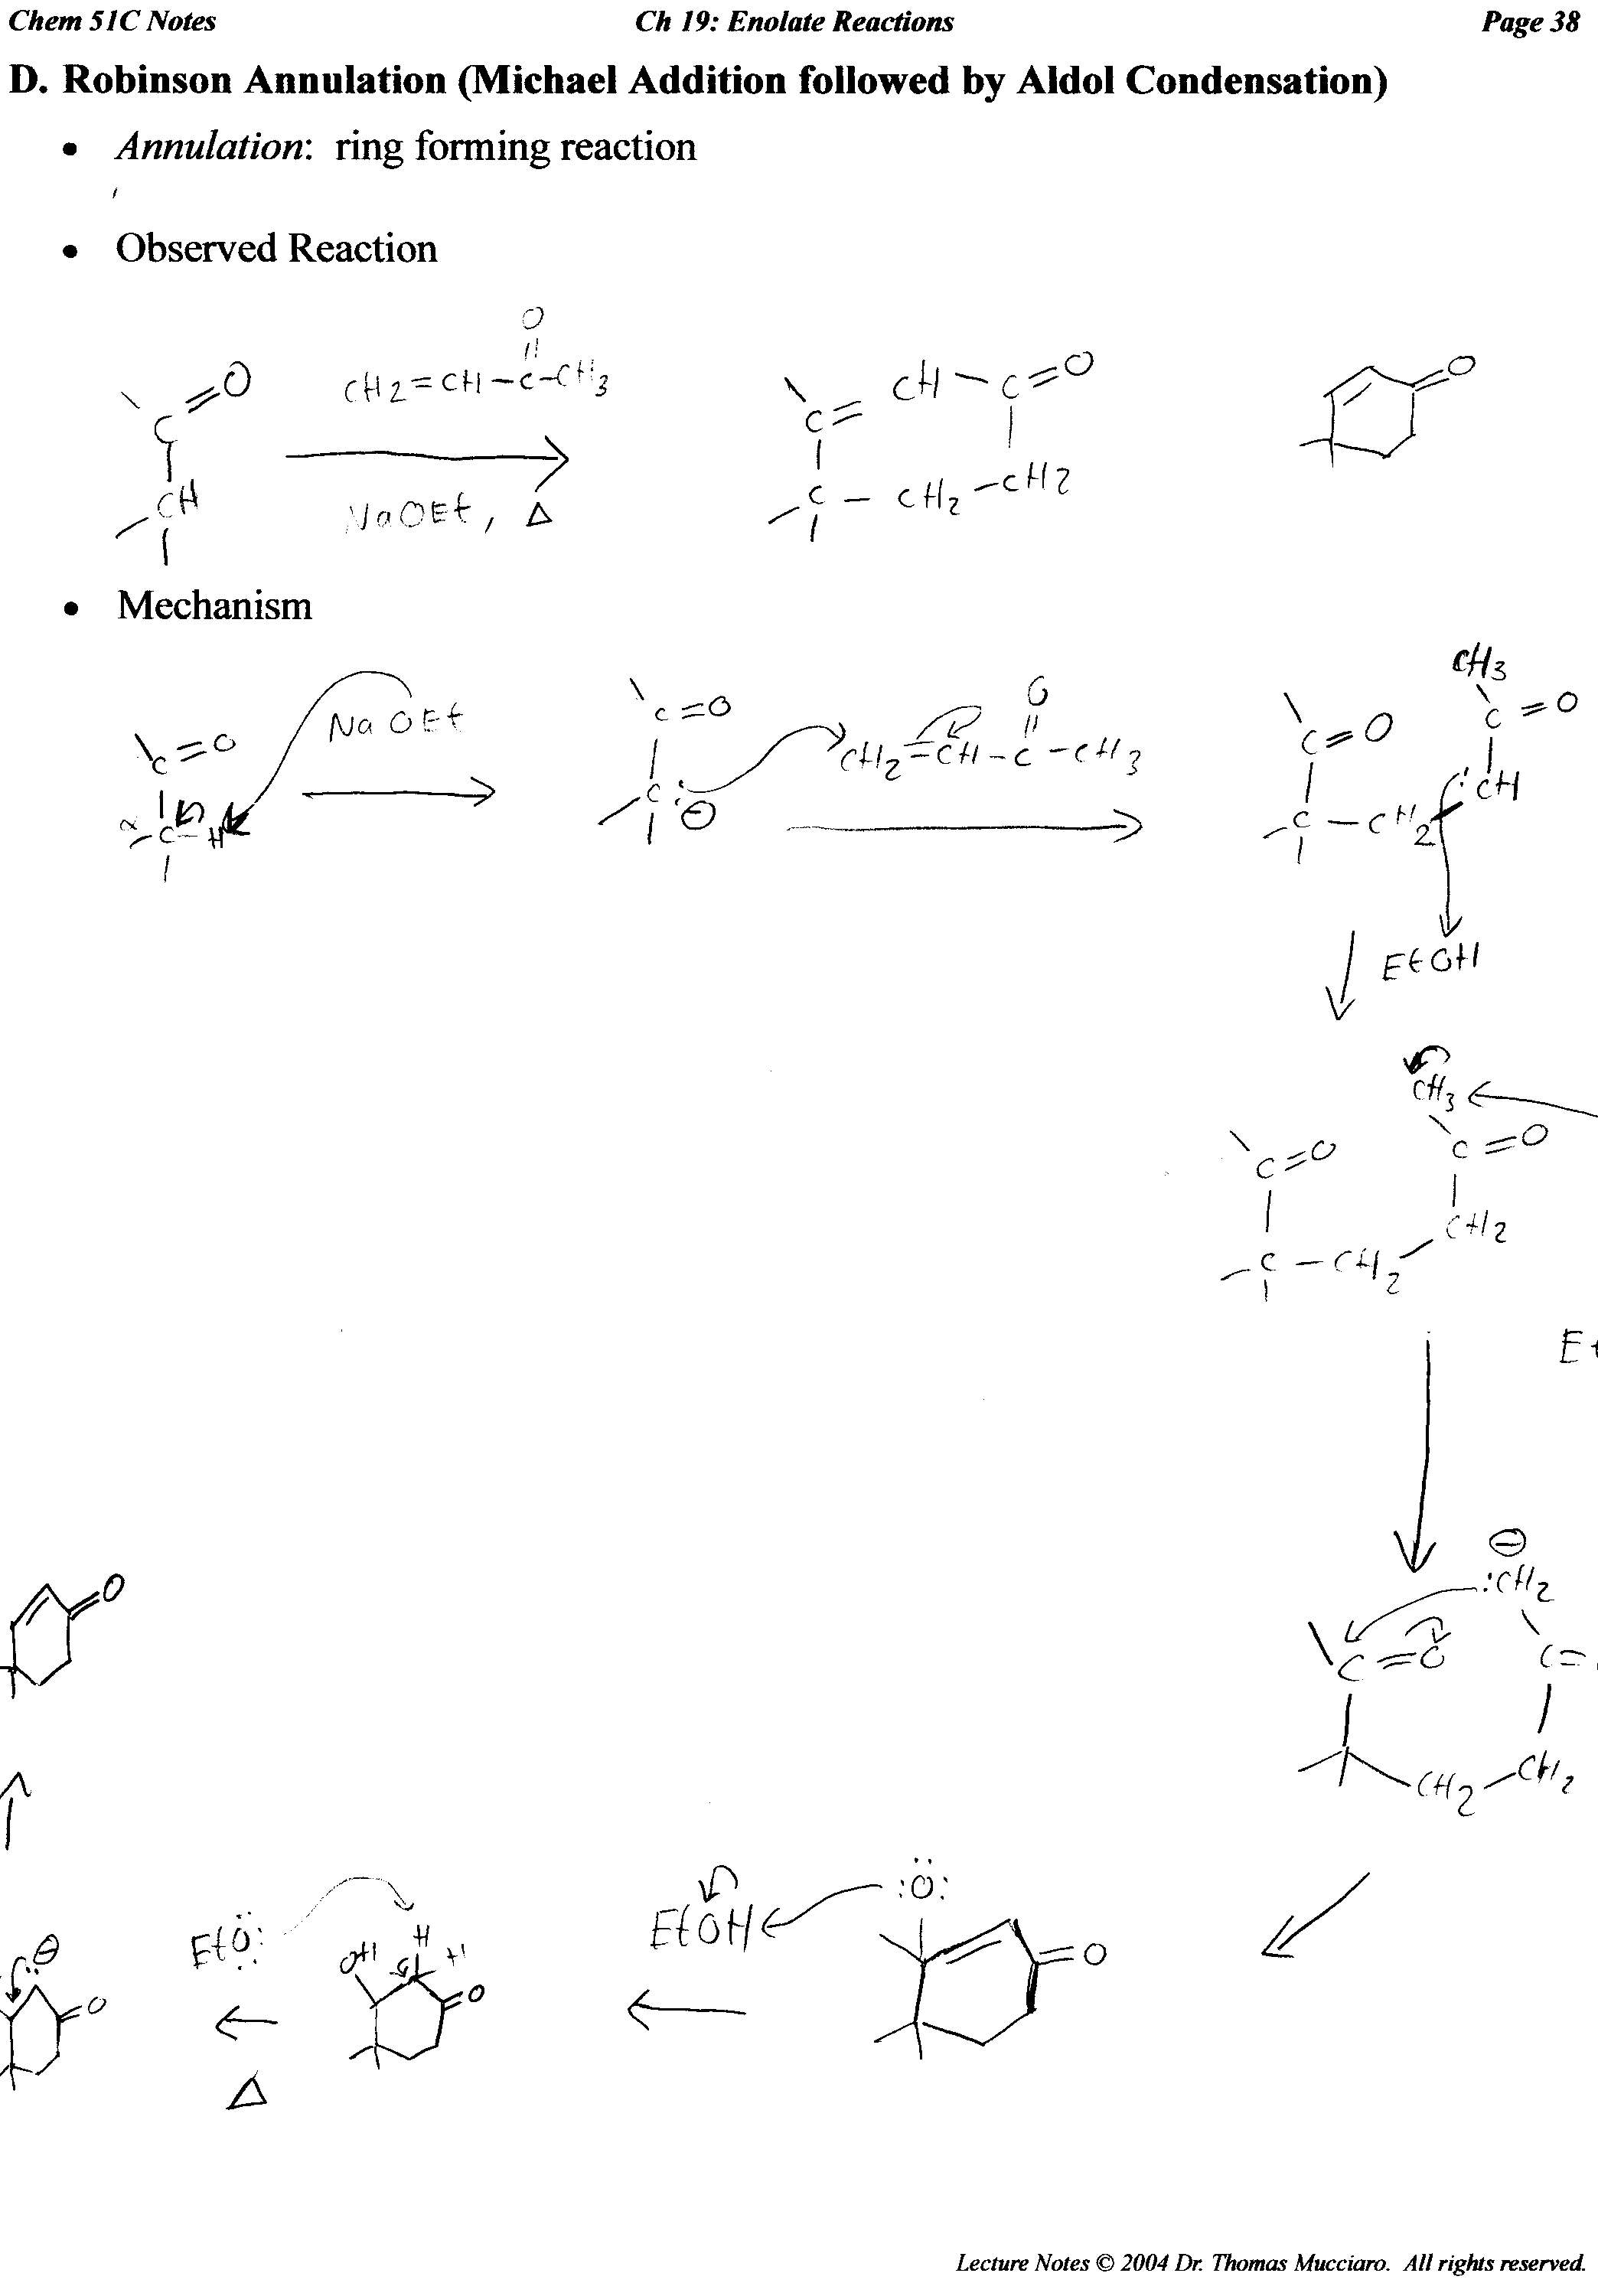 Chem 51C Notes Ch 19: Enolate Reactions Page 38
D. Robinson Annulation (Michael Addition followed by Aldol Condensation)
• Annulation: ring forming reaction
• Observed Reaction
O
C=O CH2=CH-C-CH3 CH-C=O O
C=
CH NaOEt, Δ C-CH2-CH2
• Mechanism
CH3
C=O NaOEt C=O O C=O C=O
CH2=CH-C-CH3
α C-H C:⊖ C-CH2 :CH
EtOH
CH3
C=O C=O
C-CH2 CH2
Et
⊖
:CH2
O
C=O C=
CH2-CH2
:Ö:
EtÖ: OH H H EtOH
⊖ O O O
Δ
Lecture Notes © 2004 Dr. Thomas Mucciaro. All rights reserved.